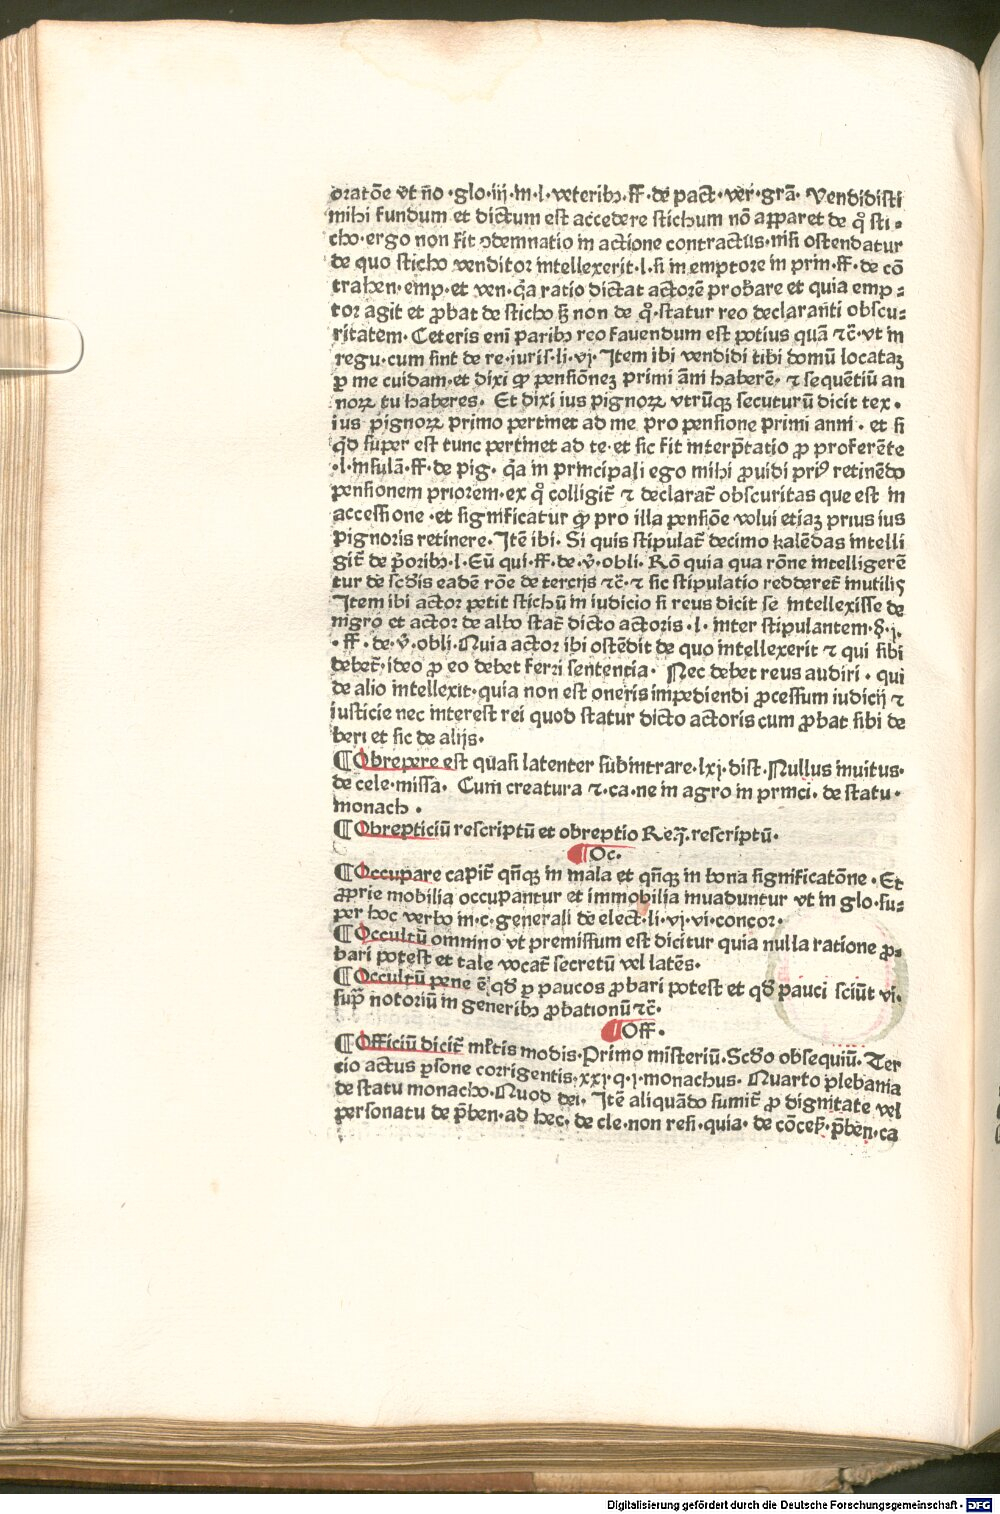 oratōe vt n̄o ·glo·iij·in·l·veterib9·ff·de pact·ver·grā· Vendidisti
mihi fundum et dictum est accedere stichum nō apparet de qͦ sti⸗
cho·ergo non fit ꝯdemnatio in actione contractus·nisi ostendatur
de quo sticho venditor intellexerit·l·si in emptore in prin·ff·de cō
trahen·emp·et ven·qͣa ratio dictat actorē probare et quia emp⸗
tor agit et ꝓbat de sticho sꝫ non de qͦ·statur reo declaranti obscu⸗
ritatem· Ceteris eni paribꝫ reo fauendum est potius quā ⁊c̄·vt in
regu·cum sint de re·iuris·li·vj· Item ibi vendidi tibi domū locataꝫ
ꝑ me cuidam·et dixi ꝙ pensionēꝫ primi āni haberē· ⁊ sequētiū an
noꝝ tu haberes· Et dixi ius pignoꝝ vtrūqꝫ secuturū dicit tex·
ius pignoꝝ primo pertinet ad me pro pensione primi anni· et si
qͥd super est tunc pertinet ad te·et sic fit interp̄tatio ꝓ proferēte
·l·insulā·ff·de pig· qͣa in principali ego mihi ꝓuidi pri9 retinēdo
pensionem priorem·ex qͦ colligit᷑ ⁊ declarat᷑ obscuritas que est in
accessione·et significatur ꝙ pro illa pensiōe volui etiaꝫ prius ius
pignoris retinere· Itē ibi· Si quis stipulat᷑ decimo kalēdas intelli
git᷑ de p̄orib9·l·Eū qui·ff·de·v̄·obli· Rō quia qua rōne intelligerē
tur de scd̄is eadē rōe de tercijs ⁊c̄·⁊ sic stipulatio redderet᷑ inutilis
Item ibi actor petit stichū in iudicio si reus dicit se intellexisse de
nigro et actor de albo stat᷑ dicto actoris·l·inter stipulantem·§·j·
·ff·de·v̄·obli·Nuia actor ibi ostēdit de quo intellexerit ⁊ qui sibi
debet᷑·ideo ꝓ eo debet ferri sententia· Nec debet reus audiri· qui
de alio intellexit·quia non est oneris impediendi ꝓcessum iudicij ⁊
iusticie nec interest rei quod statur dicto actoris cum ꝓbat sibi de
beri et sic de alijs·
¶Obrepere est quasi latenter subintrare·lxj·dist·Nullus inuitus·
de cele·missa· Cum creatura ⁊·ca·ne in agro in princi·de statu·
monach·
¶Obrepticiū rescriptū et obreptio Re·ꝗ·rescriptū·
¶Oc·
¶Occupare capit᷑ qn̄qꝫ in mala et qn̄qꝫ in bona significatōne·Et
ꝓprie mobilia occupantur et immobilia inuaduntur vt in glo·su⸗
per hoc verbo in·c·generali de elect·li·vj·vi·concor·
¶Occultū omnino vt premissum est dicitur quia nulla ratione ꝓ⸗
bari potest et tale vocat᷑ secretū vel latēs·
¶Occultū pene ē qd̄ ꝑ paucos ꝓbari potest et qd̄ pauci sciūt vi·
supͣ notoriū in generib9 ꝓbationū ⁊c̄·
¶Off·
¶Officiū dicit᷑ ml̄tis modis·Primo misteriū·Scd̄o obsequiū·Ter
tio actus ꝑsone corrigentis·xxj·q·j·monachus· Nuarto plebania
de statu monacho·Nuod dei· Itē aliquādo sumit᷑ ꝓ dignitate vel
personatu de p̄ben·ad hec·de cle·non resi·quia·de cōces·p̄ben·ca
Digitalisierung gefördert durch die Deutsche Forschungsgemeinschaft · DFG